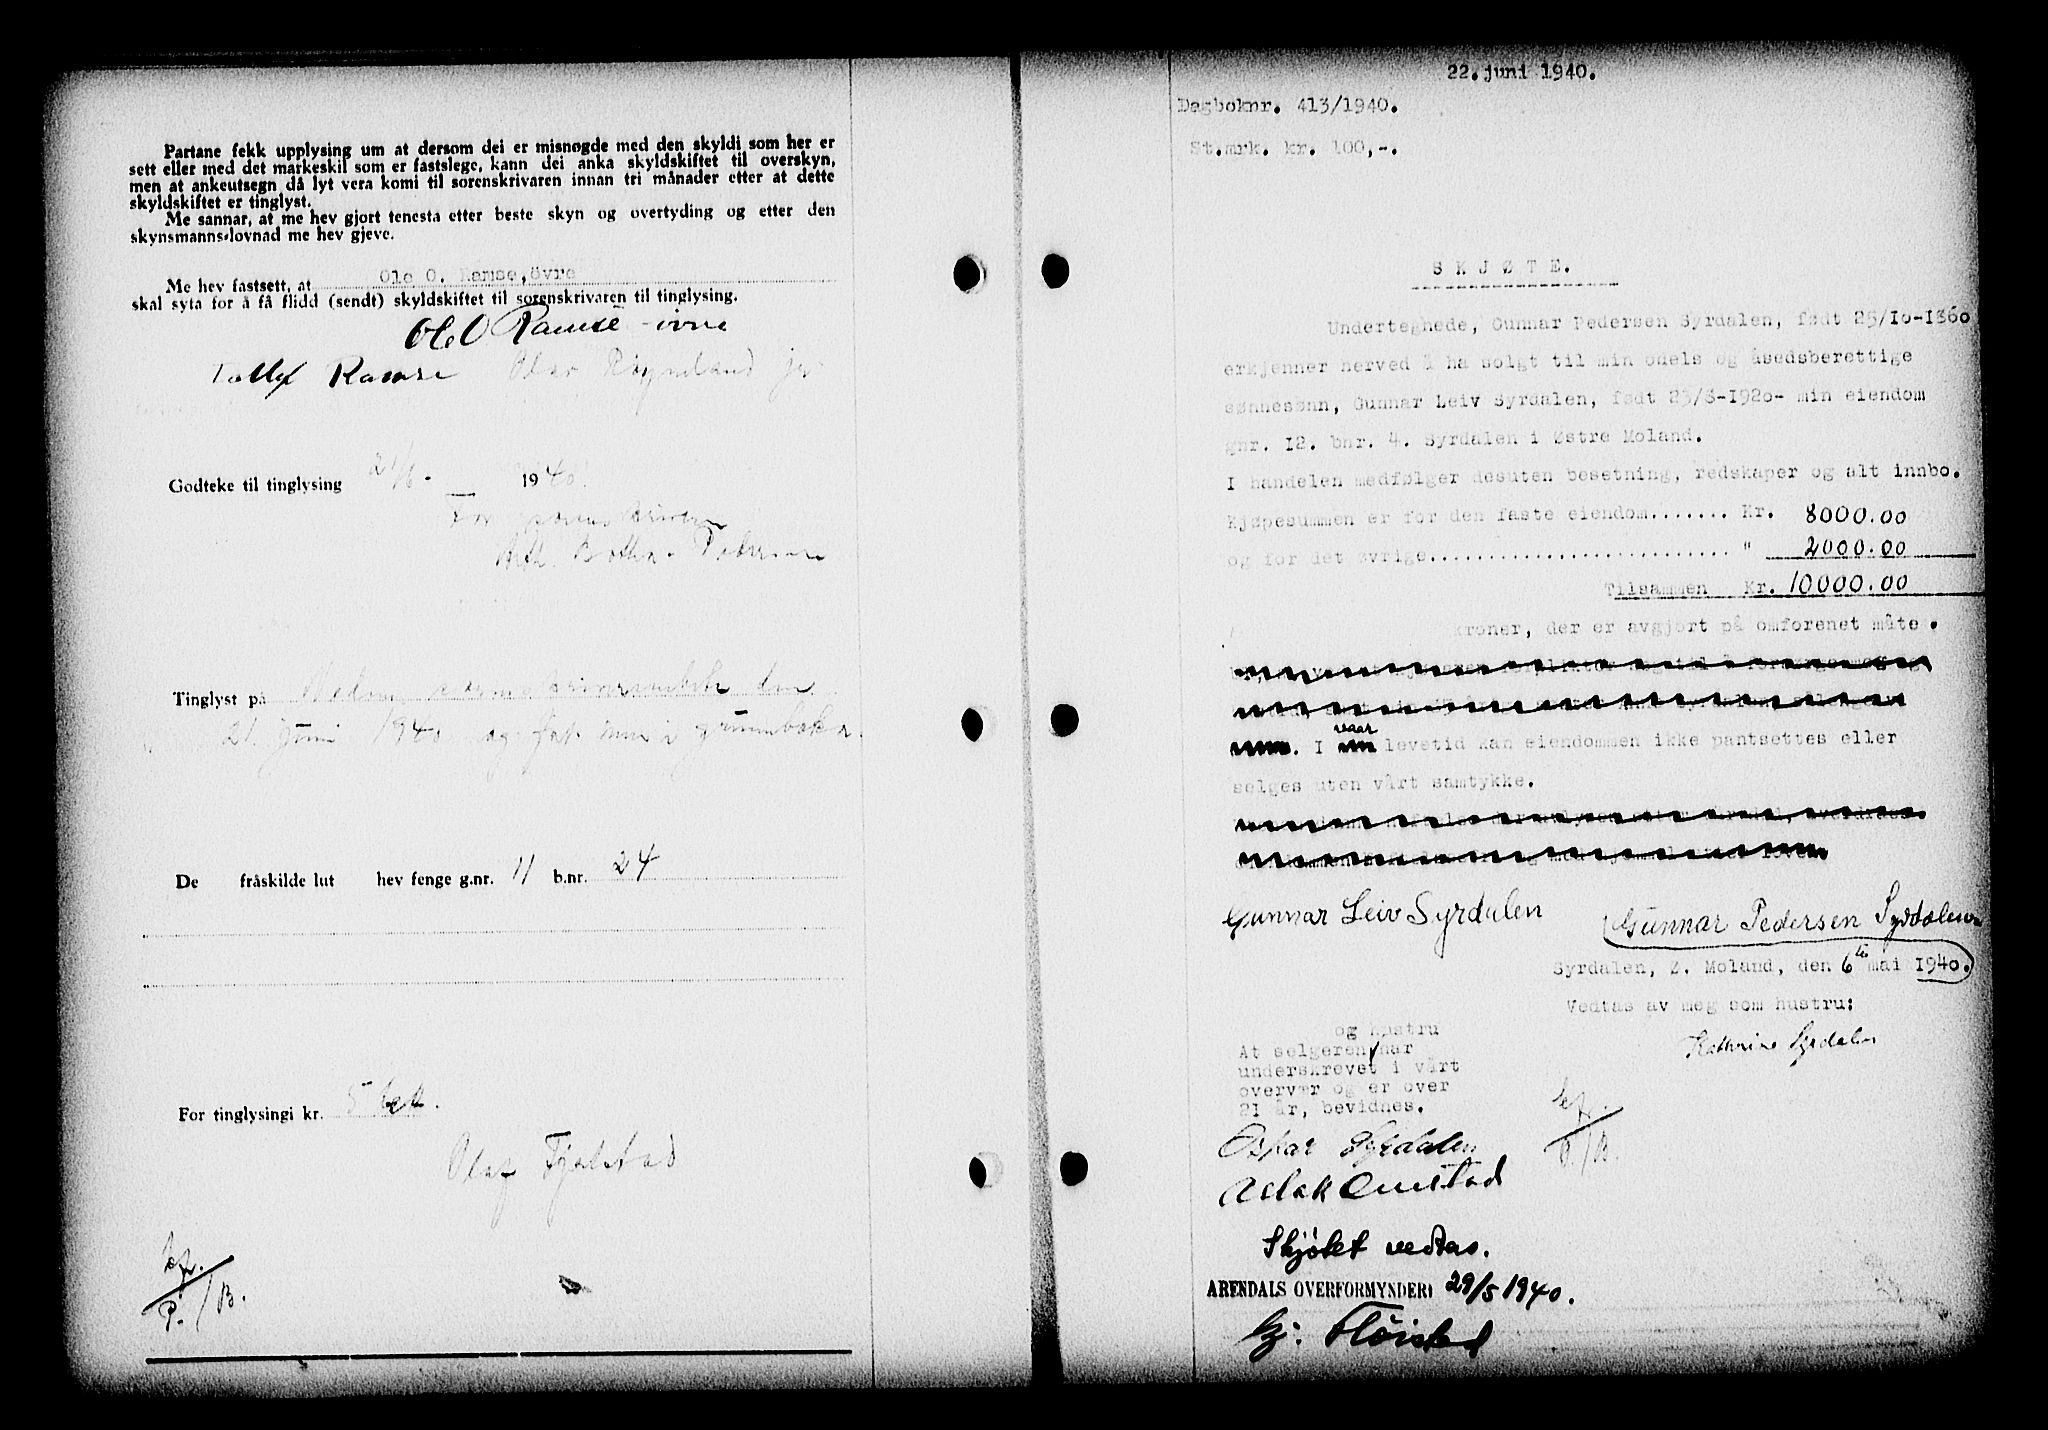 Partane fekk upplysing um at dersom dei er misnøgde med den skyldi som her er
sett eller med det markeskil som er fastslege, kann dei anka skyldskiftet til overskyn,
men at ankeutsegn då lyt vera komi til sorenskrivaren innan tri månader etter at dette
skyldskiftet er tinglyst.
Me sannar, at me hev gjort tenesta etter beste skyn og overtyding og etter den
skynsmanns-lovnad me hev gjeve.
Me hev fastsett, at Ole O. Ramse, övre
skal syta for å få flidd (sendt) skyldskiftet til sorenskrivaren til tinglysing.
Ole O Ramse - övre
Ramse Olav Røyneland jr
Godteke til tinglysing 21/6 - 1940.
for sorenskriveren
Tinglyst på Nedenes sorenskrivarembete den
21. juni 1940 og ført inn i grunnboka.
De fråskilde lut hev fenge g.nr. 11 b.nr. 24
For tinglysingi kr. 5
Olaf Fjalstad
P. / B.
22. juni 1940.
Dagboknr. 413/1940.
St.mrk. kr. 100,-.
SKJØTE.
Undertegnede, Gunnar Pedersen Syrdalen, født 25/10-1860
erkjenner herved å ha solgt til min odels og åsedsberettige
sønnesønn, Gunnar Leiv Syrdalen, født 23/8-1920- min eiendom
gnr. 12. bnr. 4. Syrdalen i Østre Moland.
I handelen medfølger desuten besetning, redskaper og alt innbo.
Kjøpesummen er for den faste eiendom....... Kr. 8000.00
og for det øvrige.......................... " 2000.00
Tilsammen Kr. 10000.00
kroner, der er avgjort på omforenet måte.
vaar
. I levetid kan eiendommen ikke pantsettes eller
selges uten vårt samtykke.
Gunnar Leiv Syrdalen
Gunnar Pedersen Syrdalen
Syrdalen, Ø. Moland, den 6te mai 1940.
Vedtas av meg som hustru:
Kathrine Syrdalen
og hustru
At selgeren har
underskrevet i vårt
overvær og er over
21 år, bevidnes.
Oskar Syrdalen
Aslak Omstad
Skjøtet vedtas.
ARENDALS OVERFORMYNDERI 29/5 1940.